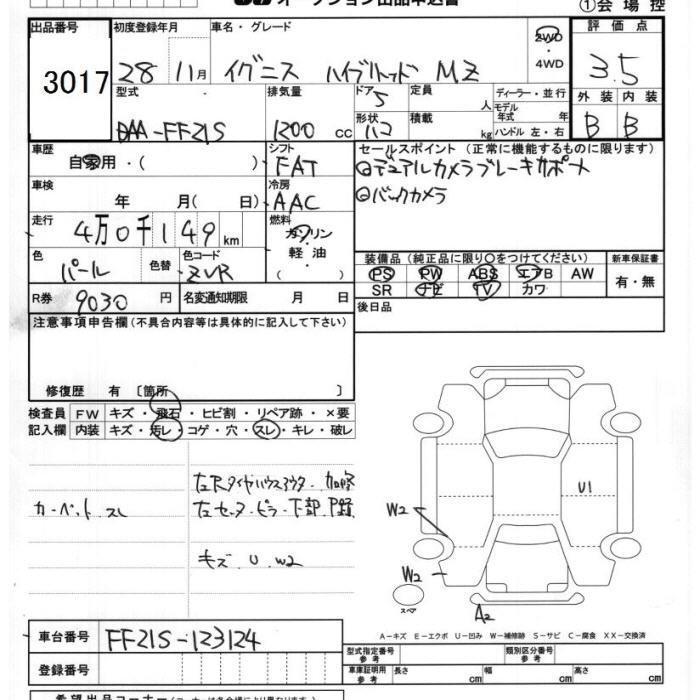 オークション出品申込書
①会場控
出品番号
3017
初度登録年月
28 11月
車名・グレード
イグニス ハイブリッド MZ
2WD
・4WD
評価点
3.5
型式
DAA-FF21S
排気量
1200 cc
ドア
5
形状
ハコ
定員
人
積載
kg
ディーラー・並行
モデル年式 年
ハンドル 左・右
外装
内装
B
B
車歴
自家用・( )
シフト
FAT
車検
年 月( 日)
冷房
AAC
走行
4万0千149km
燃料
ガソリン
軽油
( )
色
パール
色替
色コード
ZVR
R券
9030 円
名変通知期限 月 日
セールスポイント(正常に機能するものに限ります)
◎デュアルカメラブレーキサポート
◎バックカメラ
装備品(純正品に限り○をつけてください)
新車保証書
PS PW ABS エアB AW
SR ナビ TV カワ
有・無
後日品
注意事項申告欄(不具合内容等は具体的に記入して下さい)
修復歴 有〔箇所 〕
検査員
記入欄
FW キズ・飛石・ヒビ割・リペア跡・×要
内装 キズ・汚レ・コゲ・穴・スレ・キレ・破レ
カーペット スレ
キズ U W2
U1
W2
W2
A2
スペア
A-キズ E-エクボ U-凹み W-補修跡 S-サビ C-腐食 XX-交換済
車台番号
FF21S-123124
登録番号
型式指定番号
参考
類別区分番号
参考
車庫証明用
参考
長さ cm
幅 cm
高さ cm
希望出品コーナー